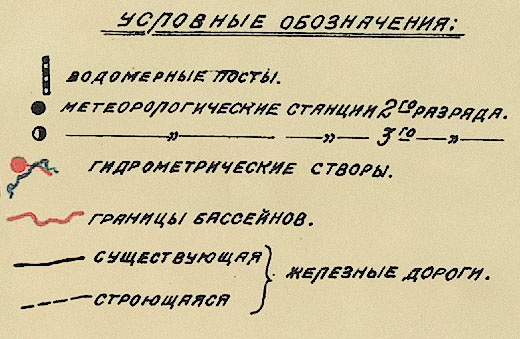 УСЛОВНЫЕ ОБОЗНАЧЕНИЯ:
ВОДОМЕРНЫЕ ПОСТЫ.
МЕТЕОРОЛОГИЧЕСКИЕ СТАНЦИИ 2го РАЗРЯДА.
—— „ —— — „ — 3го — „ —
ГИДРОМЕТРИЧЕСКИЕ СТВОРЫ.
ГРАНИЦЫ БАССЕЙНОВ.
СУЩЕСТВУЮЩАЯ
ЖЕЛЕЗНЫЕ ДОРОГИ.
СТРОЮЩАЯСЯ